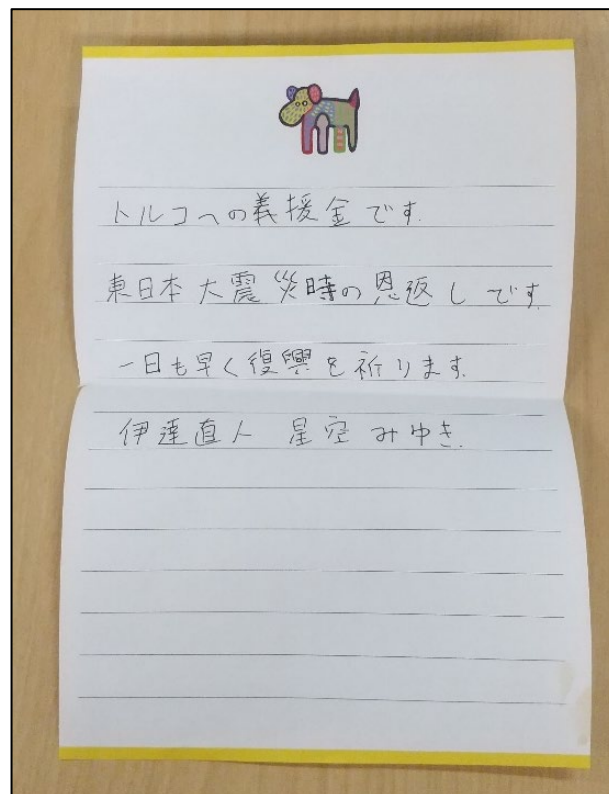 トルコへの義援金です.
東日本大震災時の恩返しです.
一日も早く復興を祈ります.
伊達直人 星空みゆき.